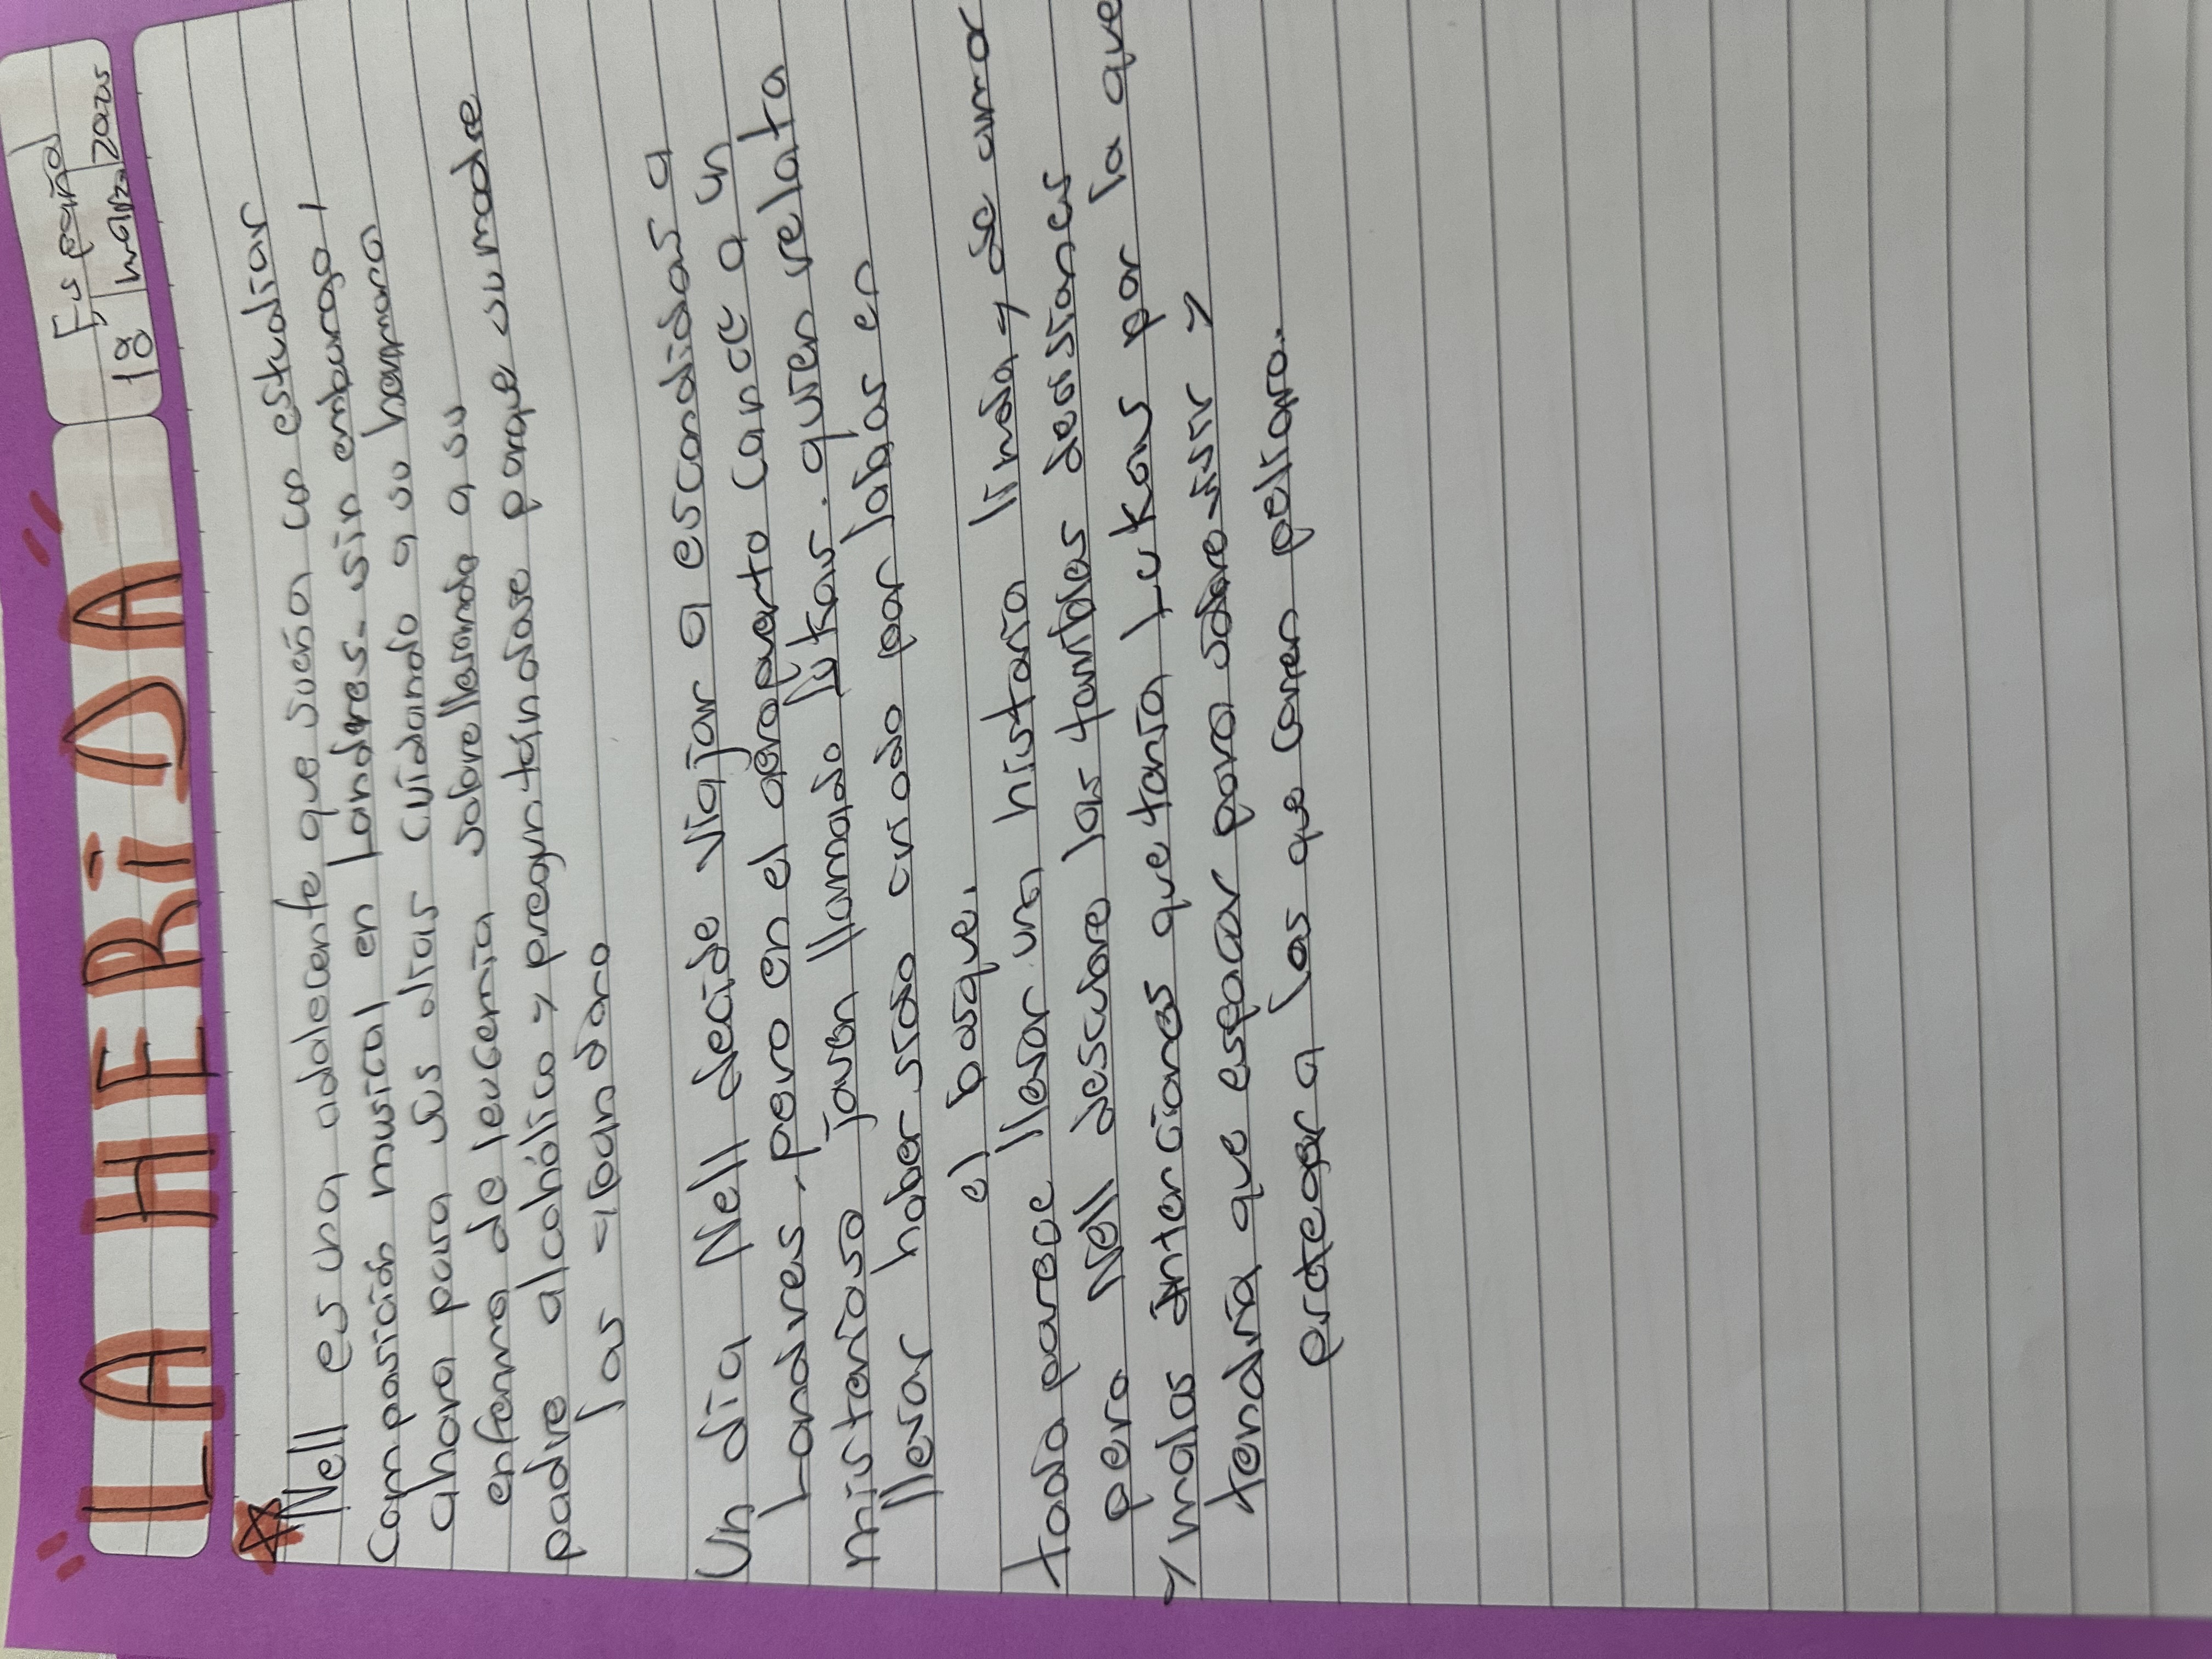 LA HERIDA
Español
18 marzo 2025
Nell es una adolecente que sueña con estudiar
composición musical en londres. sin embargo,
ahora para sus dias cuidando a su hermara
enferma de leucemia sobrellevando a su
padre alcohólico y preguntándose porque su madre
los abandaro
Un día Nell decide viajar a escondidas a
Londres, pero en el aeropuerto conoce a un
misterioso joven llamado lukas. quien relata
llevar haber sido criado por lobos en
el bosque.
todo parece llevar una historia linda y de amor
pero Nell descubre las terribles desiciones
y malas intenciones que tenía Lukas por la que
tendría que escapar para sobrevivir y
proteger a los que corren peligro.